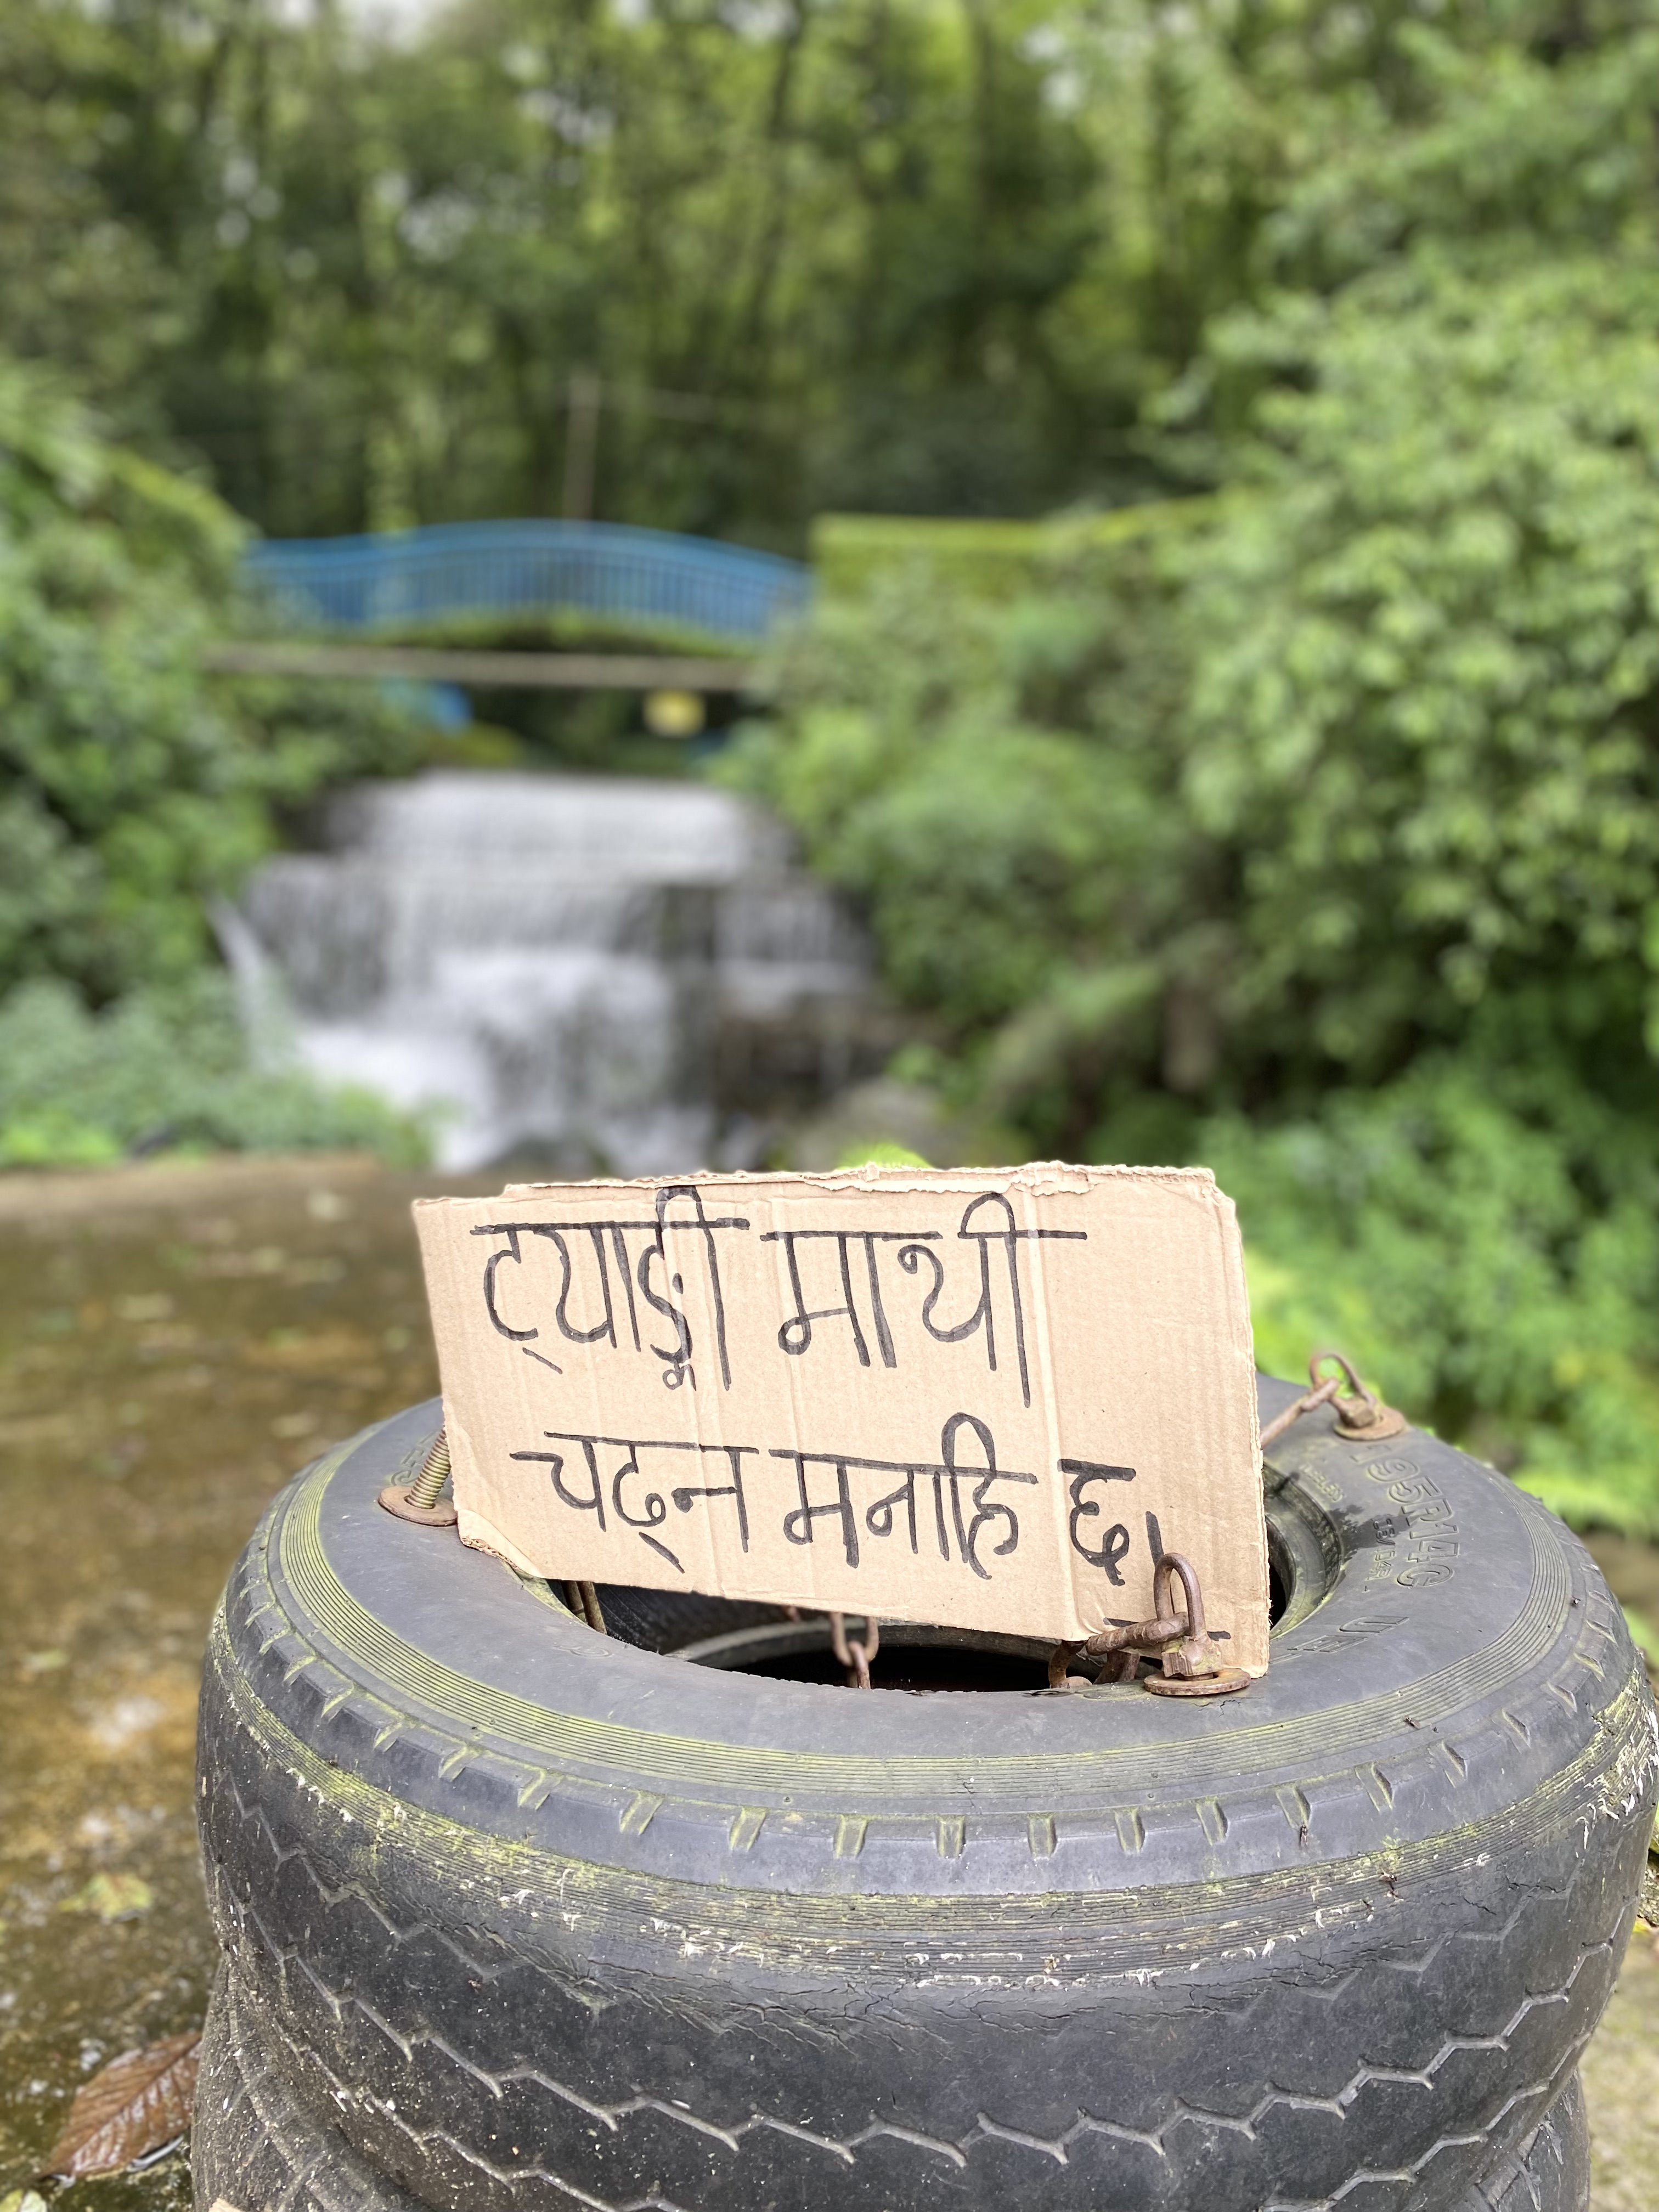 ट्याङ्की माथी
चढ्न मनाहि छ।
195R14C